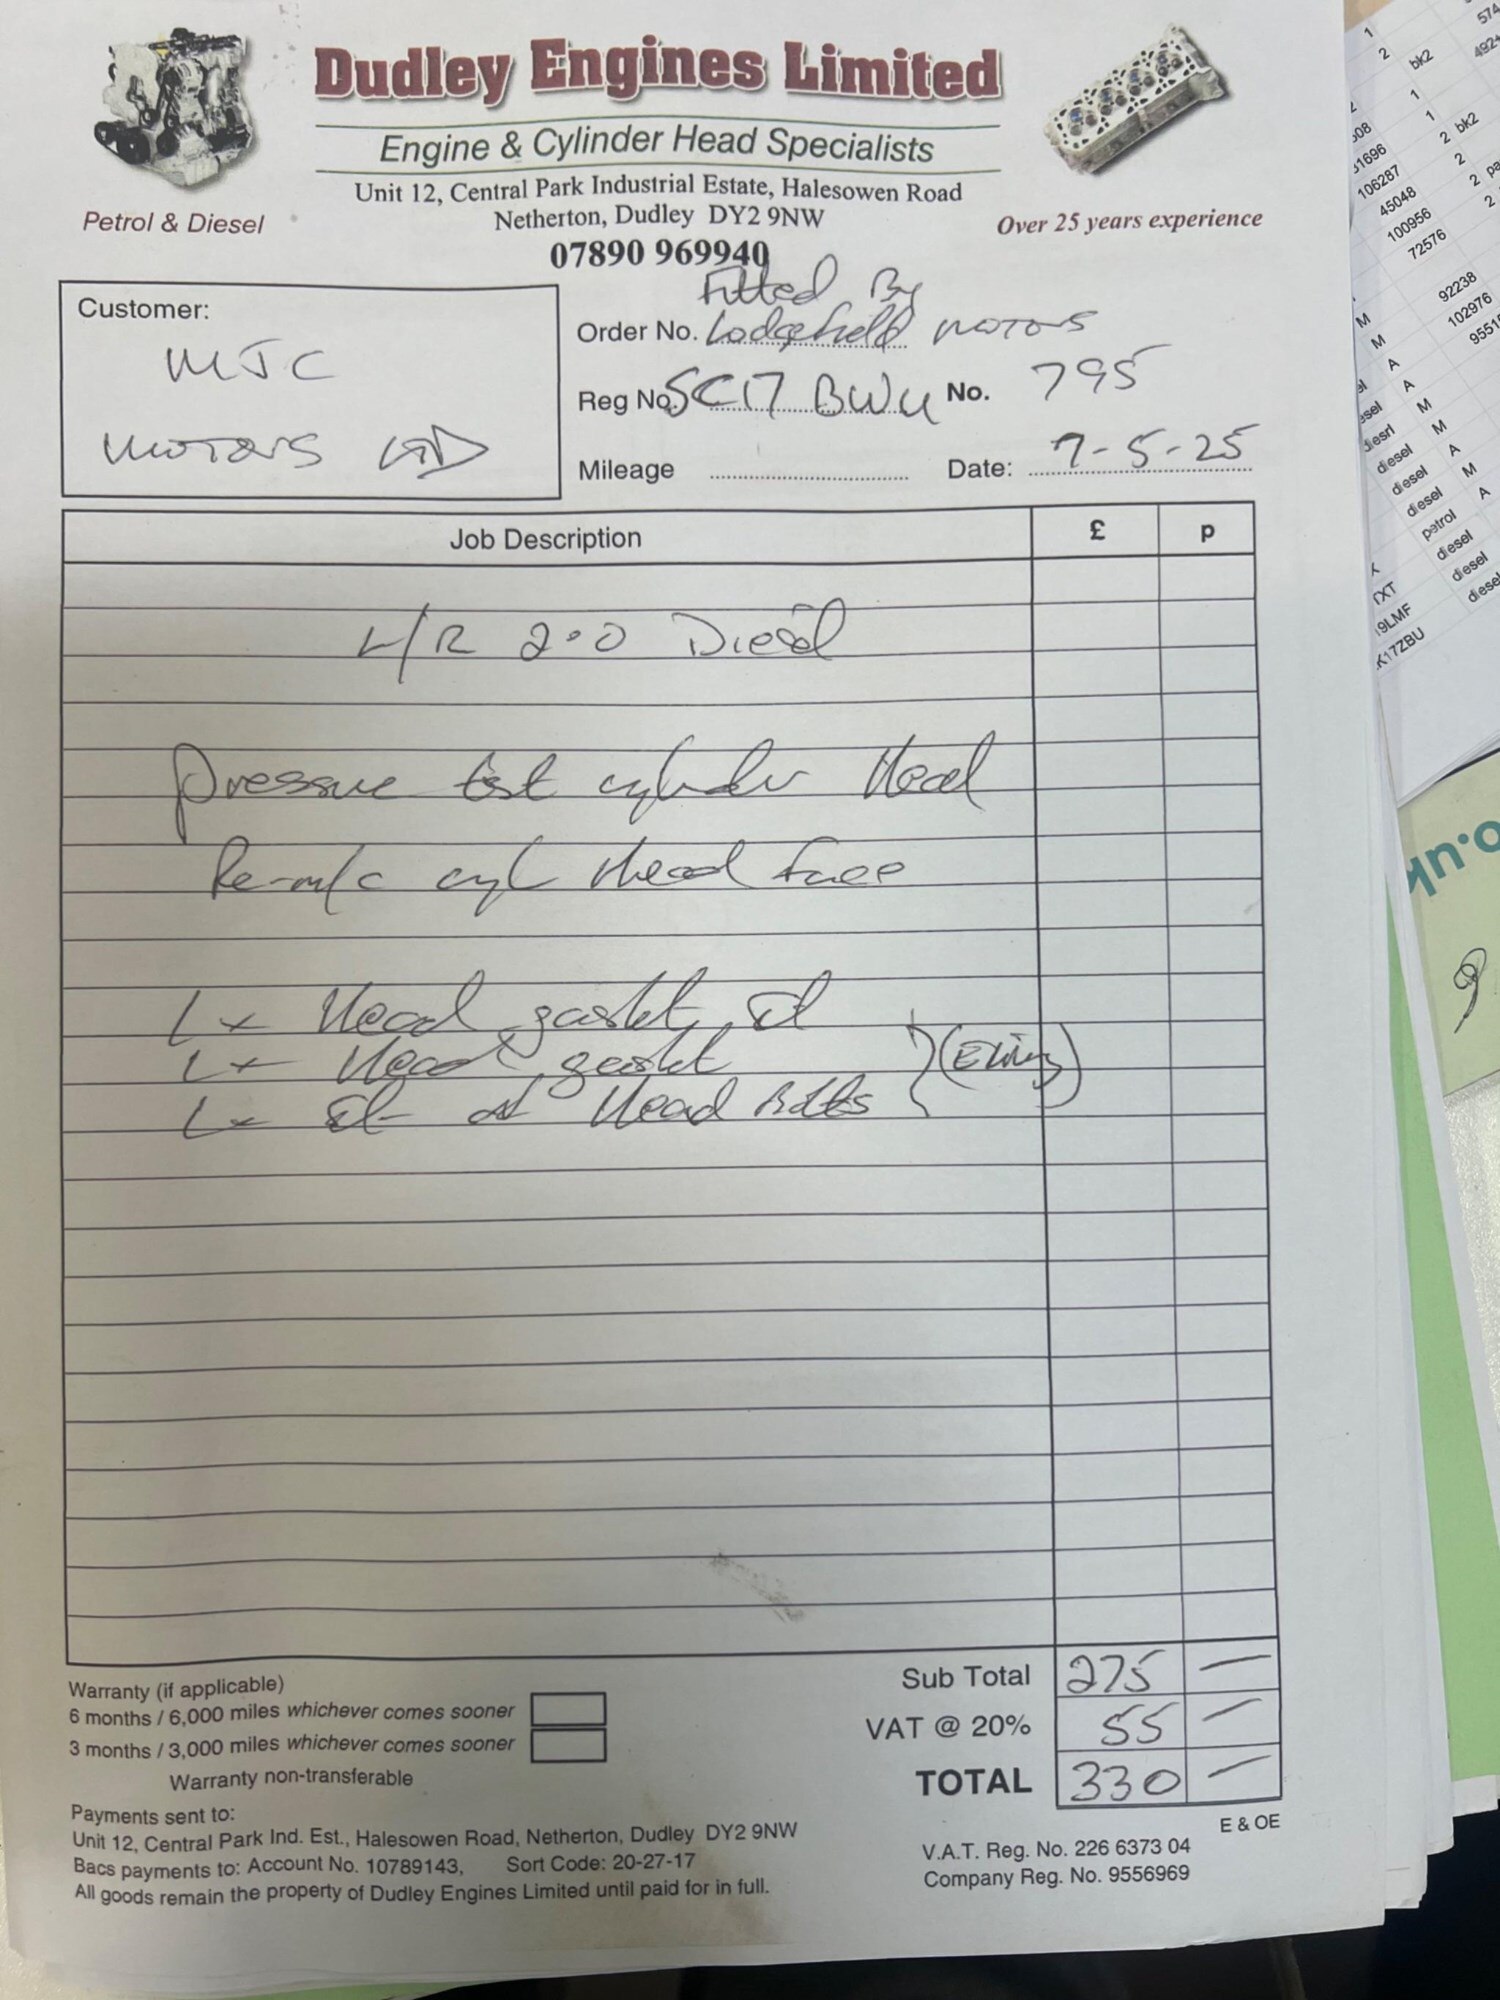 Dudley Engines Limited
Engine & Cylinder Head Specialists
Unit 12, Central Park Industrial Estate, Halesowen Road
Netherton, Dudley DY2 9NW
07890 969940
Petrol & Diesel
Over 25 years experience
Fitted By
Customer:
MJC
MOTORS LTD
Order No. Lodgefield MOTORS
Reg No. SC17 BWU No. 795
Mileage Date: 7-5-25
Job Description £ p
L/R 2.0 Diesel
Pressure test cylinder Head
Re-m/c cyl Head face
1x Head gasket set
1x Head gasket
1x set of Head Bolts
(Elring)
Sub Total 275 —
VAT @ 20% 55 —
TOTAL 330 —
Warranty (if applicable)
6 months / 6,000 miles whichever comes sooner
3 months / 3,000 miles whichever comes sooner
Warranty non-transferable
Payments sent to:
Unit 12, Central Park Ind. Est., Halesowen Road, Netherton, Dudley DY2 9NW
Bacs payments to: Account No. 10789143, Sort Code: 20-27-17
All goods remain the property of Dudley Engines Limited until paid for in full.
E & OE
V.A.T. Reg. No. 226 6373 04
Company Reg. No. 9556969
1
2 bk2
1
1
2 bk2
2
31696
106287
45048
100956
72576
92238
102976
M
M
A
A
M
M
A
M
A
diesel
diesel
diesel
petrol
diesel
diesel
diesel
TXT
9LMF
K17ZBU
o.uk